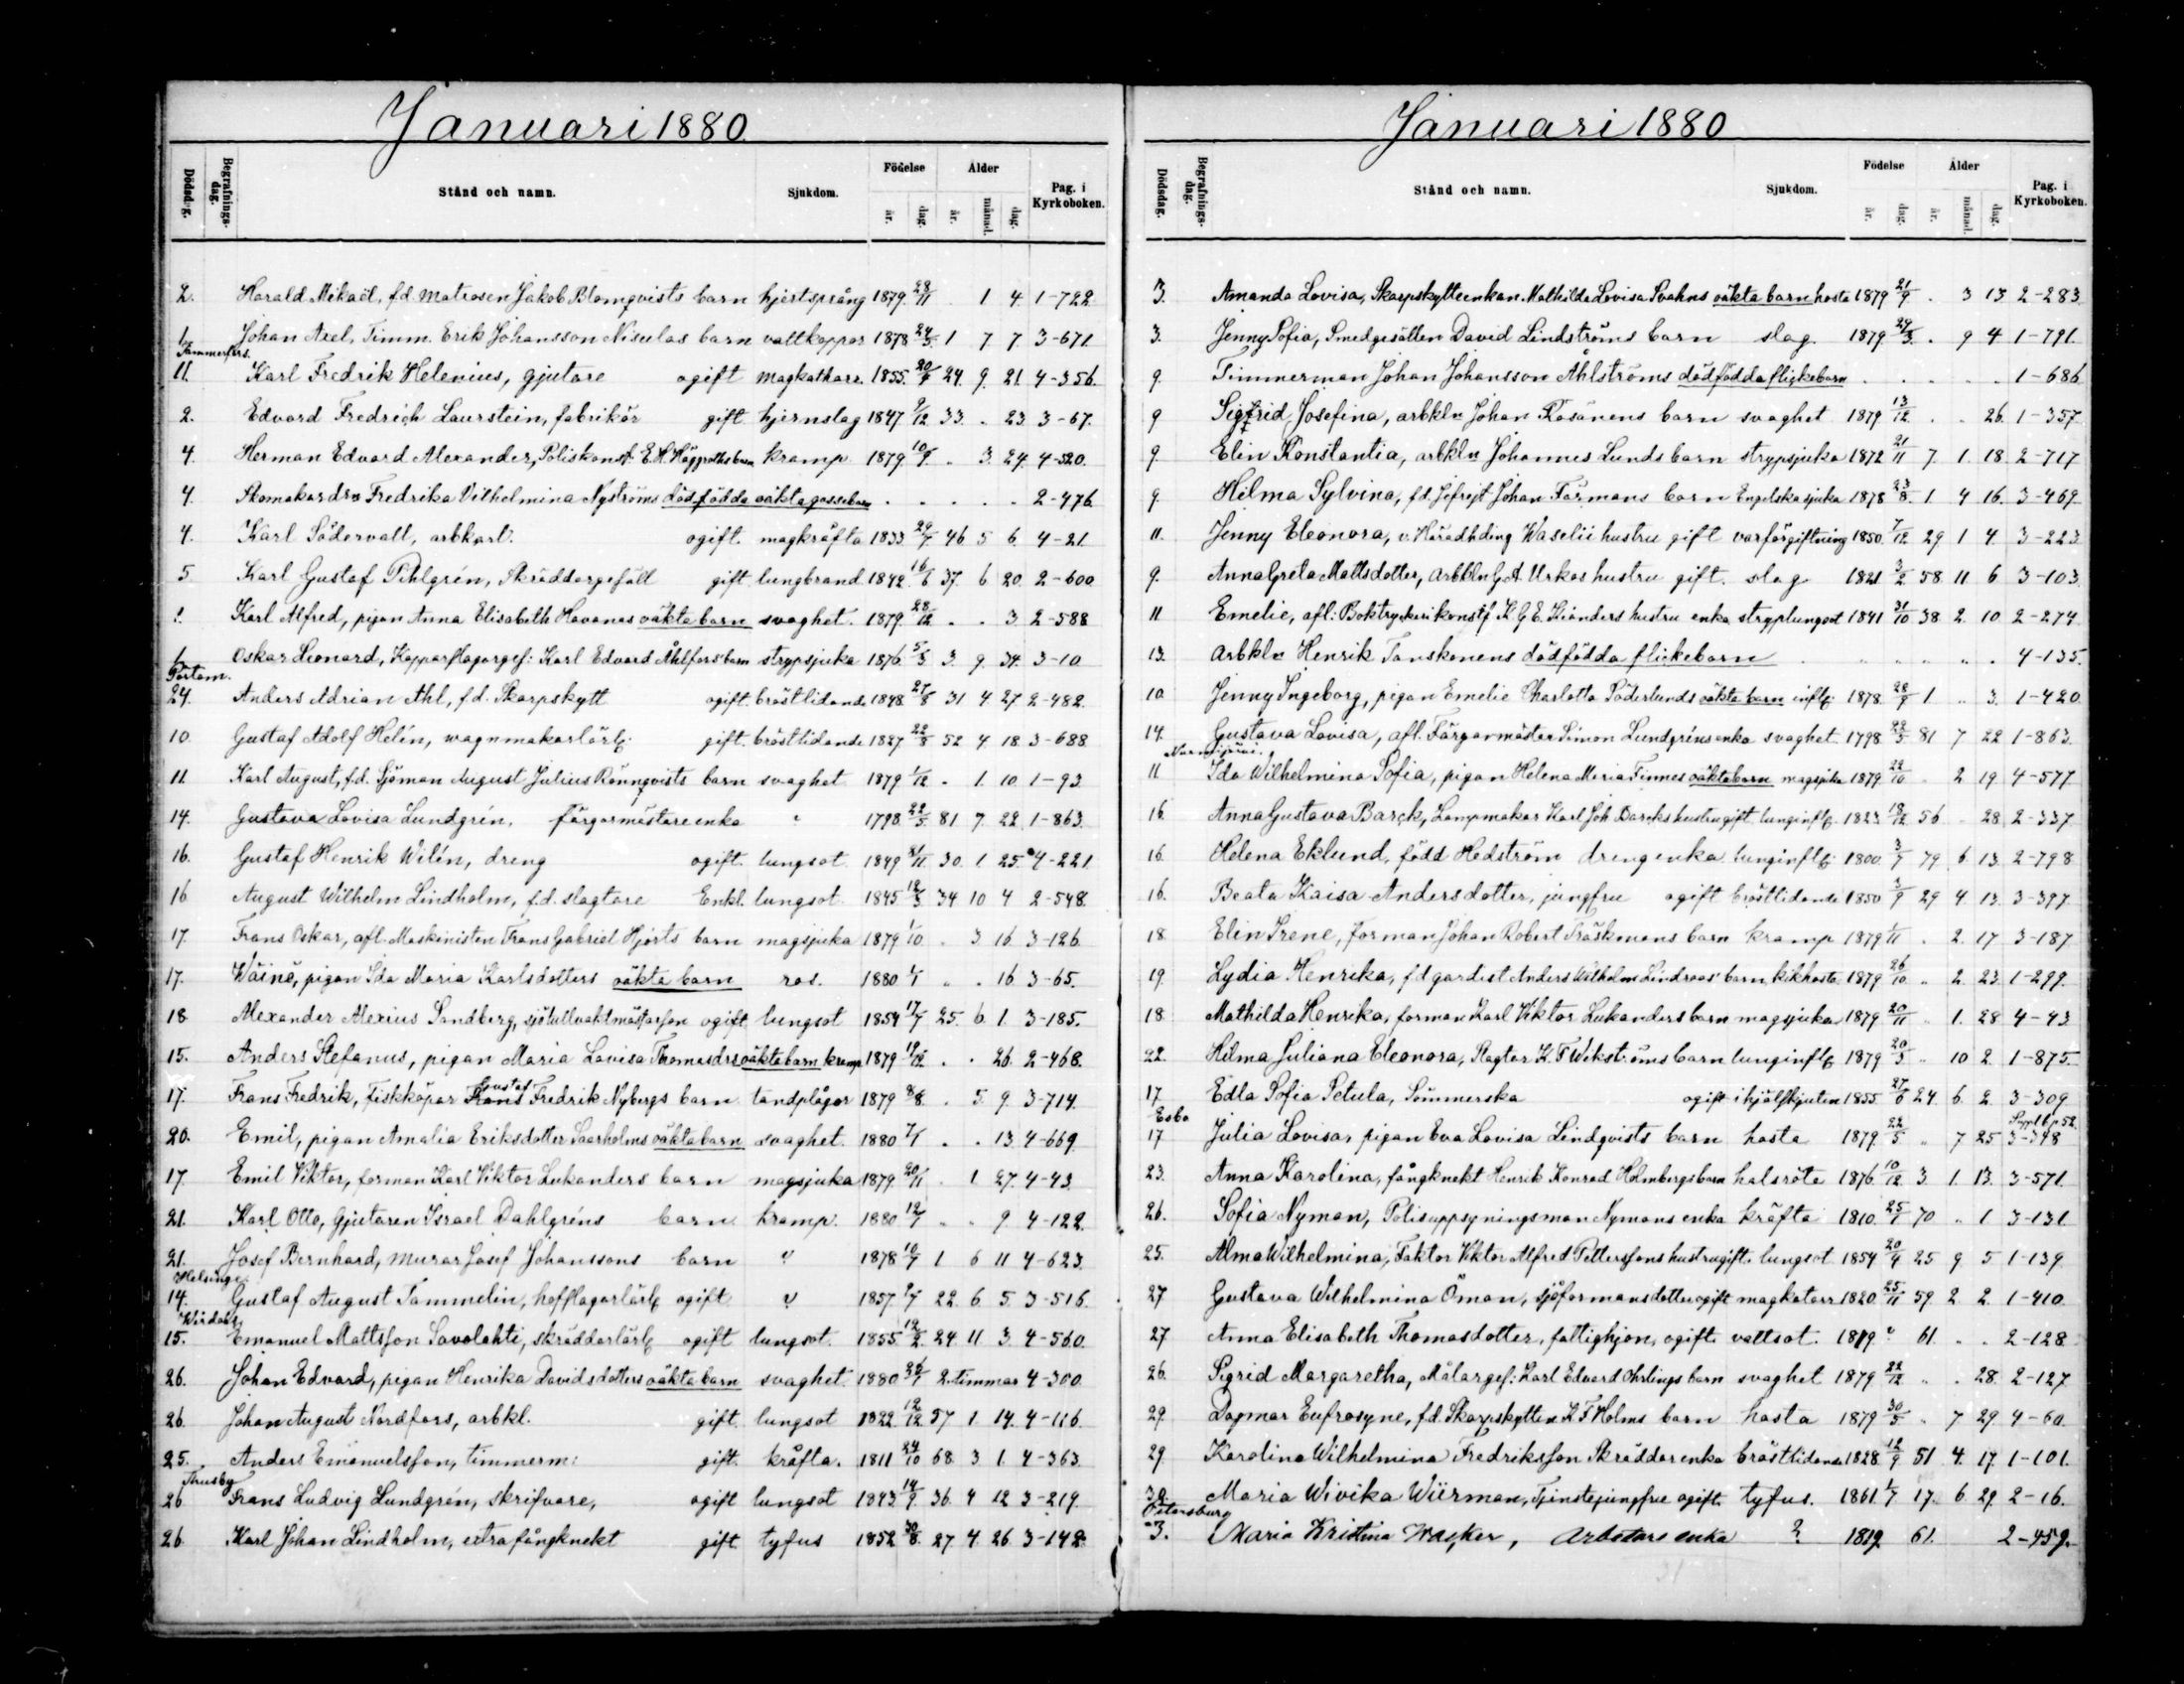 Januari 1880
Dödsdag. Begrafningsdag. Stånd och namn. Sjukdom. Födelse år. dag. Ålder år. månad. dag. Pag. i Kyrkoboken.
2. Harald Mikaël, f.d. Matrosen Jakob Blomqvists barn hjertsprång 1879 28/11 1 4 1-722
1 Johan Axel, Timm. Erik Johansson Nisulas barn vattkoppor 1878 24/5 1 7 7 3-671
Tammerfors.
11. Karl Fredrik Helenius, gjutare ogift magkatharr. 1855 20/4 24 9 21 4-356.
2. Edvard Fredrich Laurstein, fabrikör gift hjernslag 1847 9/12 33 . 23 3-67.
4. Herman Edvard Alexander, Poliskonst. E.H. barn kramp 1879 10/9 . 3 24 4-520.
4. Skomakardrn Fredrika Vilhelmina Nyströms dödfödda oäkta gossebarn . . . . . 2-476
4. Karl Södervall, arbkarl. ogift. magkräfta 1833 29/7 46 5 6 4-21
5 Karl Gustaf Pihlgrén, Skräddargesäll gift lungbrand 1842 16/6 37 6 20 2-600
1. Karl Alfred, pigan Anna Elisabeth Havanas oäkta barn svaghet. 1879 28/12 . . 3 2-588
1 Oskar Leonard, Kopparslagarges: Karl Edvard Åhlfors' barn strypsjuka 1876 5/3 3 9 3-10
Pörtom.
24. Anders Adrian Ahl, f.d. Skarpskytt ogift bröstlidande 1848 27/8 31 4 27 2-482.
10. Gustaf Adolf Helén, wagnmakarlärlg: gift. bröstlidande 1827 22/8 52 4 18 3-688
11. Karl August, f.d. Sjöman August Julius Rönnqvists barn svaghet 1879 1/12 . 1 10 1-93
14. Gustava Lovisa Lundgrén, färgarmästareenka " 1798 22/5 81 7 22 1-863.
16. Gustaf Henrik Wilén, dreng ogift lungsot 1849 21/11 30 1 25 4-221
16 August Wilhelm Lindholm, f.d. slagtare Enkl. lungsot 1845 12/3 34 10 4 2-548.
17 Frans Oskar, afl. Maskinisten Frans Gabriel Hjorts barn magsjuka 1879 1/10 . 3 16 3-126
17. Wäinö, pigan Ida Maria Karlsdotters oäkta barn ros. 1880 1/1 . . 16 3-65.
18 Alexander Alexius Sandberg, sjötullvaktmästarson ogift lungsot 1854 17/7 25 6 1 3-185.
15. Anders Stefanus, pigan Maria Lovisa Thomasdrs oäkta barn kramp 1879 19/12 . . 26 2-468.
17. Frans Fredrik, Fiskköpar Frans Gustaf Fredrik Nybergs barn tandplågor 1879 8/8 . 5 9 3-714.
20. Emil, pigan Amalia Eriksdotter Saarholms oäkta barn svaghet. 1880 7/1 . . 13 4-669.
17. Emil Viktor, forman Karl Viktor Lukanders barn magsjuka 1879 20/11 . 1 27 4-43.
21. Karl Otto, Gjutaren Israel Dahlgréns barn kramp. 1880 12/1 . . 9 4-122.
21. Josef Bernhard, murar Josef Johanssons barn " 1878 10/7 1 6 11 4-623
Helsinge
14. Gustaf August Tammelin, hofslagarlärlg ogift " 1857 9/7 22 6 5 3-516.
15. Emanuel Mattsson Savolahti, skräddarlärlg ogift lungsot. 1855 12/2 24 11 3 4-560.
26. Johan Edvard, pigan Henrika Davidsdotters oäkta barn svaghet. 1880 26/1 2 timmar 4-300
26. Johan August Nordfors, arbkl. gift lungsot 1822 12/12 57 1 14 4-116
25. Anders Emanuelsson, timmerm: gift kräfta. 1811 24/10 68 3 1 4-363
Thusby
26 Frans Ludvig Lundgrén, skrifvare, ogift lungsot 1843 14/9 36 4 12 3-219.
26. Karl Johan Lindholm, extra fångknekt gift tyfus 1852 30/8 27 4 26 3-142
Januari 1880
Dödsdag. Begrafningsdag. Stånd och namn. Sjukdom. Födelse år. dag. Ålder år. månad. dag. Pag. i Kyrkoboken.
3. Amanda Lovisa, Skarpskytteenkan Mathilda Lovisa Svahns oäkta barn hosta 1879 21/9 . 3 13 2-283
3. Jenny Sofia, Smedgesällen David Lindströms barn slag. 1879 29/3 . 9 4 1-791.
9. Timmerman Johan Johansson Åhlströms dödfödda flickebarn . . . . . 1-686
9 Sigfrid Josefina, arbkln Johan Rosänens barn svaghet 1879 13/12 . . 26 1-357
9. Elin Konstantia, arbkln Johannes Lunds barn strypsjuka 1872 21/11 7 1 18 2-717
9 Hilma Sylvina, f.d. Johan Färmans barn Engelska sjuka 1878 23/8 1 4 16 3-469.
11. Jenny Eleonora, v. Häradhding Waselii hustru gift varförgiftning 1850 7/12 29 1 4 3-223
9. Anna Greta Mattsdotter, Arbkln G. A. Urkas hustru gift. slag 1821 3/2 58 11 6 3-103.
11 Emelie, afl: Boktryckerikonstf K. G. E. Kianders hustru enka stryplungsot 1841 31/10 38 2 10 2-274
13. Arbkln Henrik Tanskanens dödfödda flickebarn . . . . . 4-135.
10 Jenny Ingeborg, pigan Emelie Charlotta Söderlunds oäkta barn inflg: 1878 28/9 1 " 3 1-420
14. Gustava Lovisa, afl. Färgarmästar Simon Lundgréns enka svaghet 1798 22/5 81 7 22 1-863.
11 Ida Wilhelmina Sofia, pigan Helena Maria Finnes oäkta barn magsjuka 1879 22/10 . 2 19 4-577
16 Anna Gustava Barck, Lampmakar Karl Joh Barcks hustru gift lunginflg. 1823 18/12 56 28 2-337
16. Helena Eklund, född Hedström drengenka lunginflg: 1800 3/7 79 6 13 2-798
16. Beata Kaisa Andersdotter, jungfru ogift bröstlidande 1850 3/9 29 4 13 3-397.
18 Elin Irene, forman Johan Robert Träskmans barn kramp 1879 1/11 . 2 17 3-187
19. Lydia Henrika, f.d. gardist Anders Wilhelm Lindroos' barn kikhosta 1879 26/10 " 2 23 1-299.
18 Mathilda Henrika, forman Karl Viktor Lukanders barn magsjuka 1879 20/11 " 1 28 4-43
22. Hilma Juliana Eleonora, K. F. Wikströms barn lunginflg 1879 20/3 " 10 2 1-875.
17. Edla Sofia Petula, Sömmerska ogift ihjälskjuten 1855 27/6 24 6 2 3-309
Esbo Suppl b p 52.
17 Julia Lovisa, pigan Eva Lovisa Lindqvists barn hosta 1879 22/5 " 7 25 3-348
23. Anna Karolina, fångknekt Henrik Konrad Holmbergs barn halsröta 1876 10/12 3 1 13 3-571.
26. Sofia Nyman, Polisuppsyningsman Nymans enka kräfta 1810 25/1 70 " 1 3-131
25. Alma Wilhelmina, Faktor Viktor Alfred Petterssons hustru gift. lungsot 1854 20/4 25 9 5 1-139
27 Gustava Wilhelmina Öman, sjöformansdotter ogift magkatarr 1820 25/11 59 2 2 1-410.
27. Anna Elisabeth Thomasdotter, fattighjon, ogift. vattsot. 1819 " 61 . . 2-128.
26. Sigrid Margaretha, Målarges: Karl Edvard Öhrlings barn svaghet 1879 22/12 " . 28 2-127
29 Dagmar Eufrosyne, f.d. Skarpskytten K F Holms barn hosta 1879 30/5 " 7 29 4-60.
29. Karolina Wilhelmina Fredriksson Skräddarenka bröstlidande 1828 12/9 51 4 17 1-101.
30 Maria Wivika Wiirman, Tjenstejungfru ogift. tyfus. 1861 1/7 17 6 29 2-16.
Petersburg
3. Maria Kristina Wacker, Arbetare enka ? 1819. 61. 2-459.